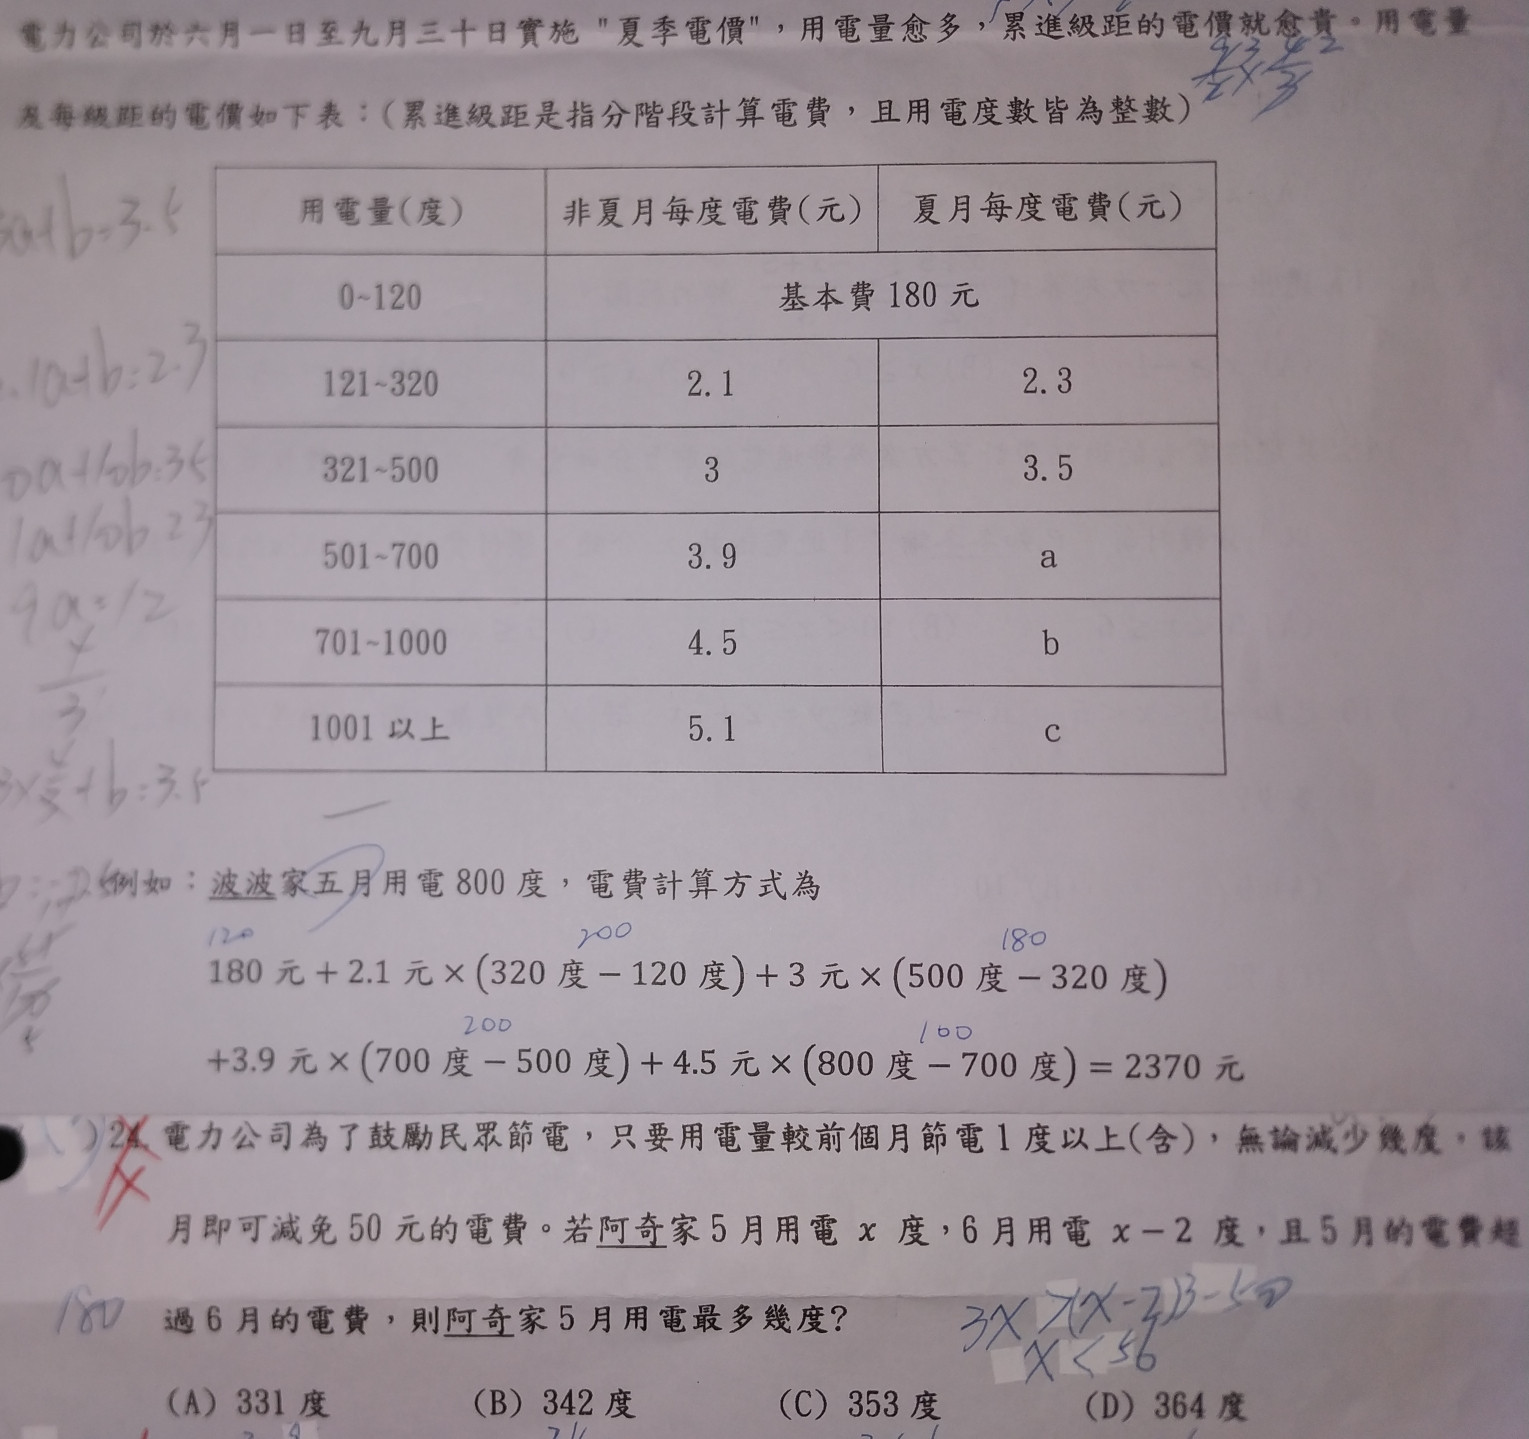 電力公司於六月一日至九月三十日實施 "夏季電價",用電量愈多,累進級距的電價就愈貴。用電量
及每級距的電價如下表:(累進級距是指分階段計算電費,且用電度數皆為整數)
用電量(度) 非夏月每度電費(元) 夏月每度電費(元)
0~120 基本費 180 元
121~320 2.1 2.3
321~500 3 3.5
501~700 3.9 a
701~1000 4.5 b
1001 以上 5.1 c
a+b=3.5
1a+b=2.3
0a+10b=35
1a+10b 23
9a=12
4
3
+b=3.5
例如:波波家五月用電 800 度,電費計算方式為
120 200 180
180 元 + 2.1 元 × (320 度 − 120 度) + 3 元 × (500 度 − 320 度)
200 100
+3.9 元 × (700 度 − 500 度) + 4.5 元 × (800 度 − 700 度) = 2370 元
)24. 電力公司為了鼓勵民眾節電,只要用電量較前個月節電 1 度以上(含),無論減少幾度,該
月即可減免 50 元的電費。若阿奇家 5 月用電 x 度,6 月用電 x − 2 度,且 5 月的電費超
過 6 月的電費,則阿奇家 5 月用電最多幾度?
180
3X >(X-2)3-50
X<56
(A) 331 度 (B) 342 度 (C) 353 度 (D) 364 度